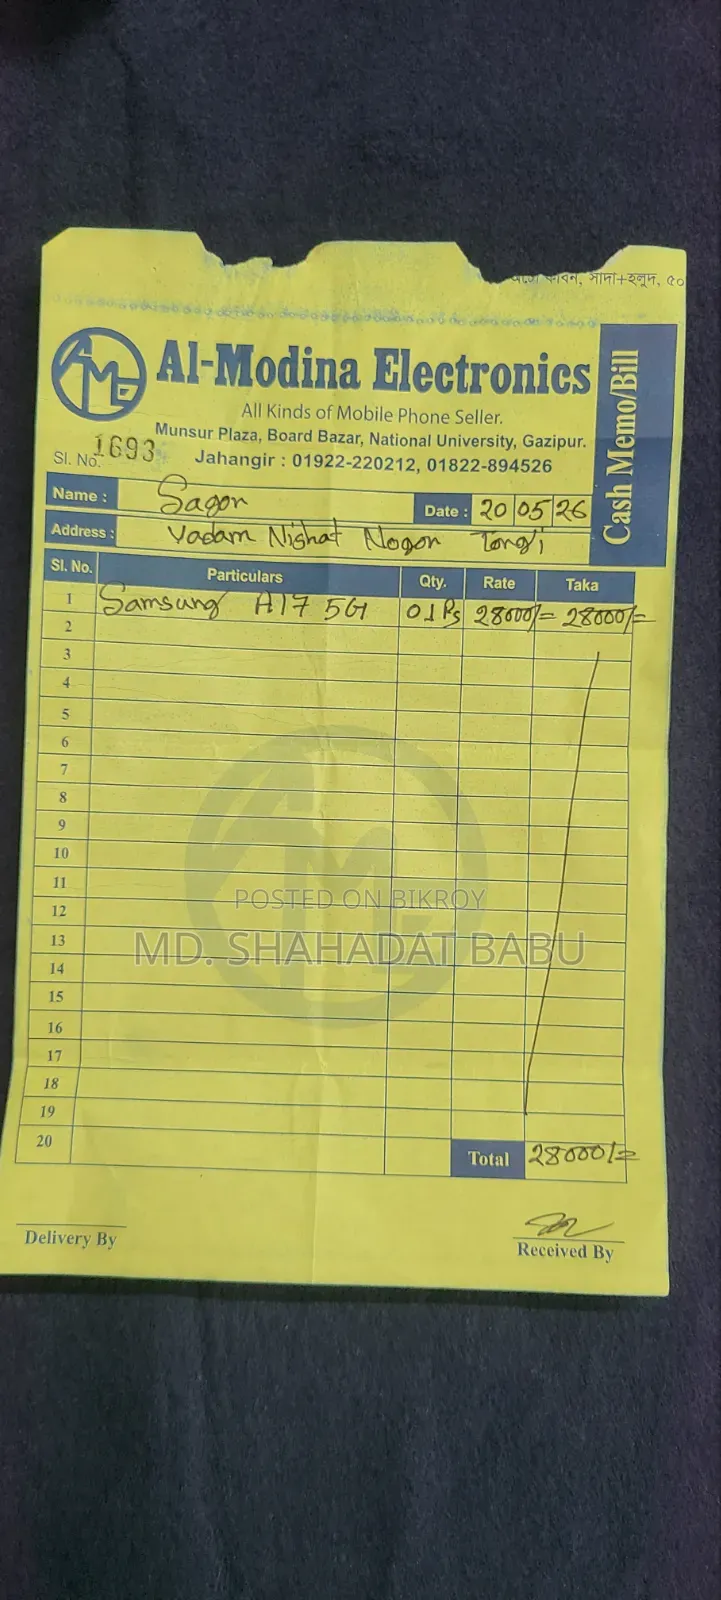 কাবন, সাদা+হলুদ, ৫০
AME
Al-Modina Electronics
All Kinds of Mobile Phone Seller.
Munsur Plaza, Board Bazar, National University, Gazipur.
Sl. No. 1693
Jahangir : 01922-220212, 01822-894526
Cash Memo/Bill
Name : Sagor
Date : 20 05 26
Address : Vadam Nishat Nogor Tongi
Sl. No. Particulars Qty. Rate Taka
1 Samsung A17 5G 01 Ps 28000/= 28000/=
2
3
4
5
6
7
8
9
10
11
12
POSTED ON BIKROY
MD. SHAHADAT BABU
13
14
15
16
17
18
19
20
Total 28000/=
Delivery By
Received By